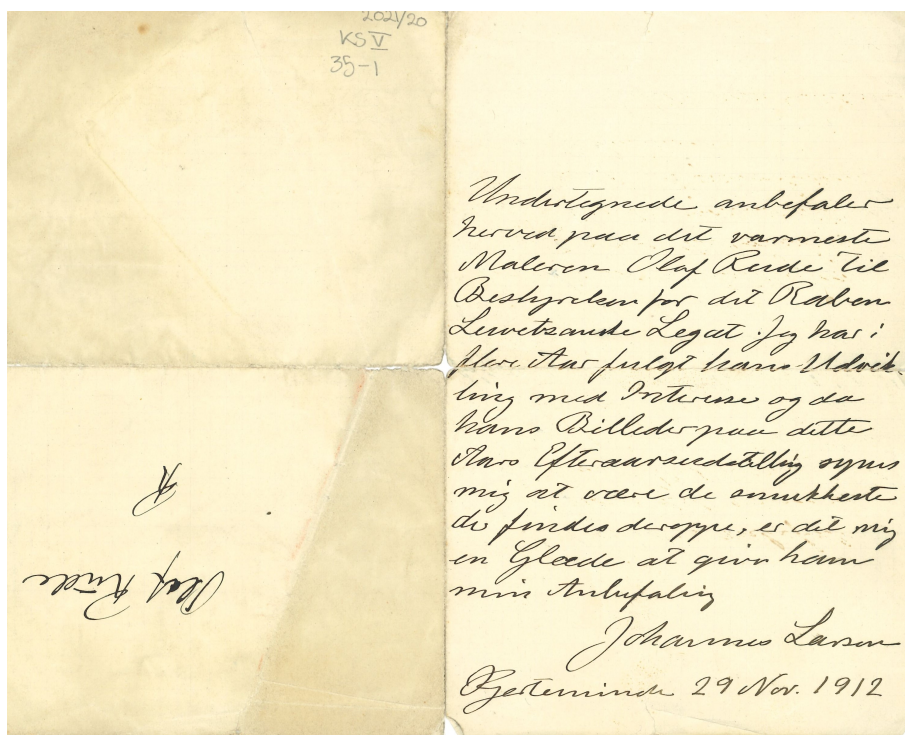 2021/20
KS V
35-1
Undertegnede anbefaler
herved paa det varmeste
Maleren Olaf Rude til
Bestyrelsen for det Raben
Lewetzauske Legat. Jeg har i
flere Aar fulgt hans Udvik-
ling med Interesse og da
hans Billeder paa dette
Aars Efteraarsudstilling synes
mig at være de smukkeste
der findes deroppe, er det mig
en Glæde at give ham
min Anbefaling
Johannes Larsen
Kjerteminde 29 Nov. 1912
Olaf Rude
R